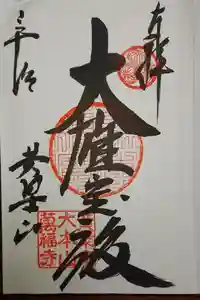 奉拝
大雄宝殿
宇治
黄檗山
大本山
萬福寺